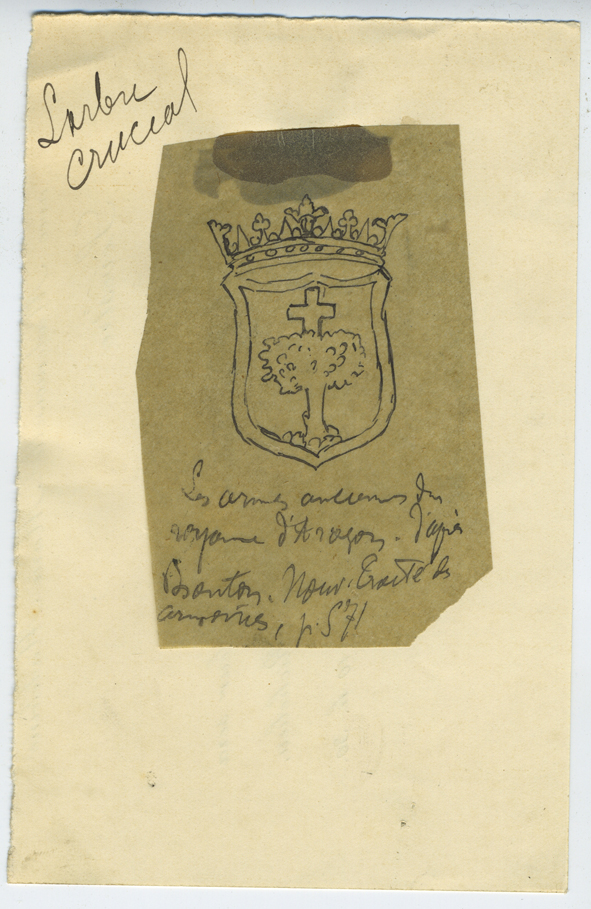 L'arbre
crucial
Les armes anciennes du
royaume d'Aragon. d'après
Nouv. Traité des
armoiries, p. 571